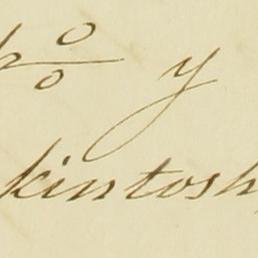 % y
kintosh